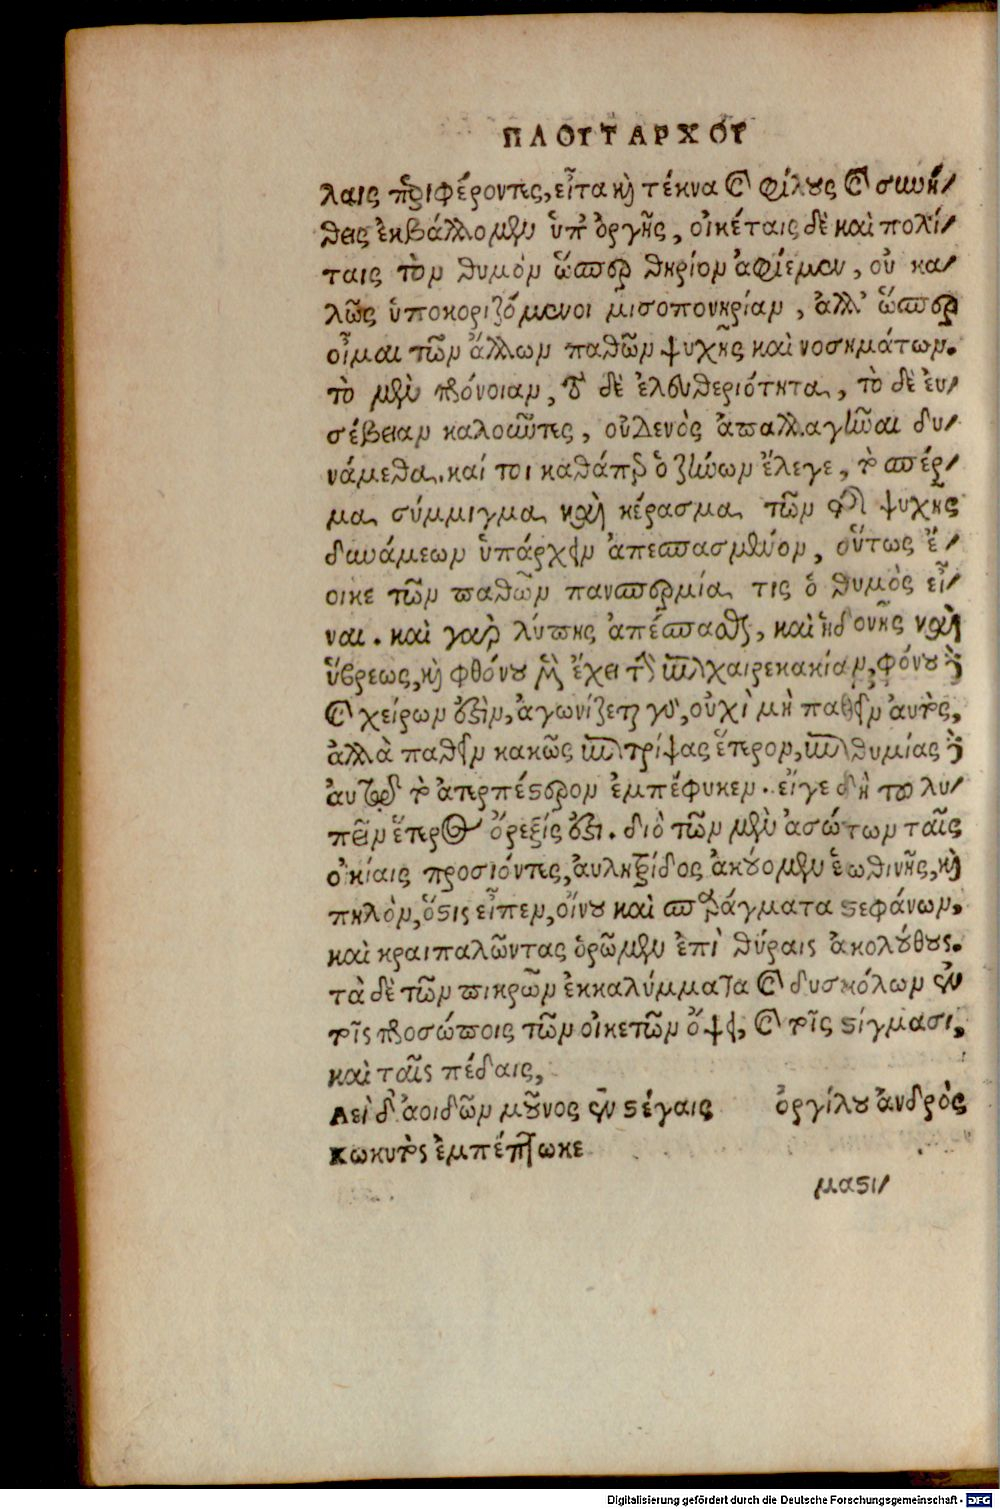 ΠΛΟΥΤΑΡΧΟΥ
λαις περιφέροντες, εἶτα καὶ τέκνα καὶ φίλους καὶ συνή/
θεις ἐκβάλλομεν ὑπ' ὀργῆς, οἰκέταις δὲ καὶ πολί/
ταις τὸν θυμὸν ὥσπερ θηρίον ἀφίεμεν, οὐ κα/
λῶς ὑποκοριζόμενοι μισοπονηρίαν, ἀλλ' ὥσπερ
οἶμαι τῶν ἄλλων παθῶν ψυχῆς καὶ νοσημάτων.
τὸ μὲν πρόνοιαν, τὸ δὲ ἐλευθεριότητα, τὸ δὲ εὐ/
σέβειαν καλοῦντες, οὐδενὸς ἀπαλλαγῆναι δυ/
νάμεθα. καί τοι καθάπερ ὁ ζήνων ἔλεγε, τὸ σπέρ/
μα σύμμιγμα καὶ κέρασμα τῶν τῆς ψυχῆς
δυνάμεων ὑπάρχειν ἀπεσπασμένον, οὕτως ἔ/
οικε τῶν παθῶν πανσπερμία τις ὁ θυμὸς εἶ/
ναι. καὶ γὰρ λύπης ἀπέσπασται, καὶ ἡδονῆς καὶ
ὕβρεως, καὶ φθόνου μὲν ἔχει τὴν ἐπιχαιρεκακίαν, φόνου δὲ
καὶ χείρων ἐστὶν, ἀγωνίζεται γὰρ, οὐχὶ μὴ παθεῖν αὐτὸς,
ἀλλὰ παθεῖν κακῶς ἐπιτρίψας ἕτερον, ἐπιθυμίας δὲ
αὐτῷ τὸ ἀτερπέστερον ἐμπέφυκεν. εἴγε δὴ τοῦ λυ/
πεῖν ἕτερον ὄρεξίς ἐστι. διὸ τῶν μὲν ἀσώτων ταῖς
οἰκίαις προσιόντες, αὐλητρίδος ἀκούομεν ἑωθινῆς, καὶ
πηλὸν, ὅστις εἶπεν, οἴνου καὶ σπαράγματα στεφάνων,
καὶ κραιπαλῶντας ὁρῶμεν ἐπὶ θύραις ἀκολούθους.
τὰ δὲ τῶν πικρῶν ἐκκαλύμματα καὶ δυσκόλων ἐν
τοῖς προσώποις τῶν οἰκετῶν ὄψει, καὶ τοῖς στίγμασι,
καὶ ταῖς πέδαις,
Αεὶ δ' ἀοιδῶν μοῦνος ἐν στέγαις ὀργίλου ἀνδρὸς
Κωκυτὸς ἐμπέπτωκε
μαστι/
Digitalisierung gefördert durch die Deutsche Forschungsgemeinschaft - DFG